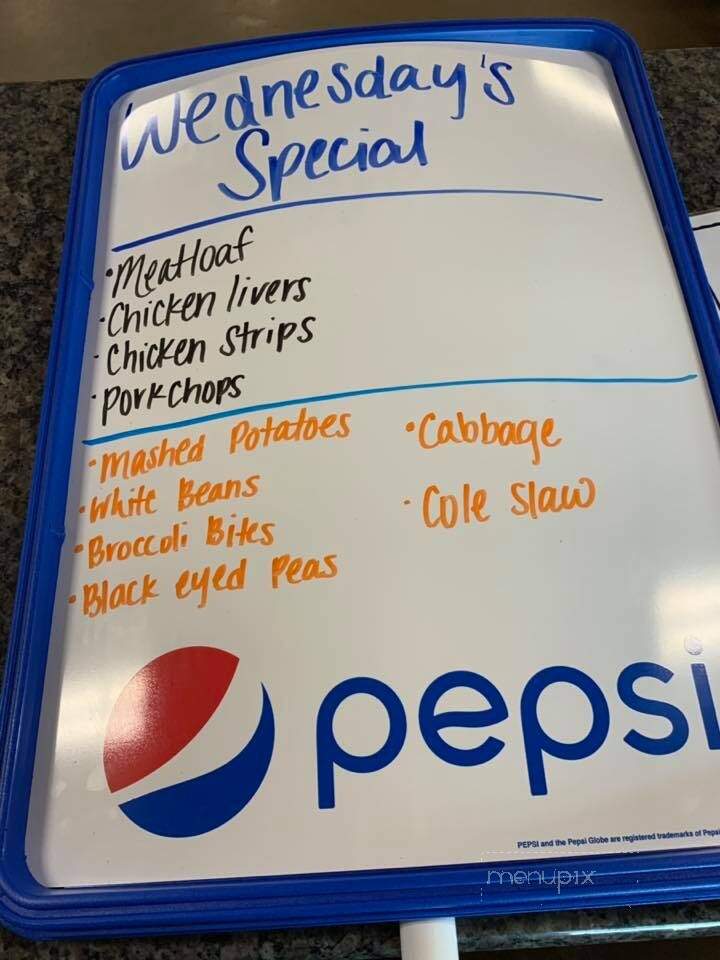 Wednesday's
Special
• Meatloaf
• Chicken livers
• Chicken Strips
• Porkchops
• Mashed Potatoes
• White Beans
• Broccoli Bites
• Black eyed Peas
• Cabbage
• Cole Slaw
pepsi
PEPSI and the Pepsi Globe are registered trademarks of Pepsi
menupix